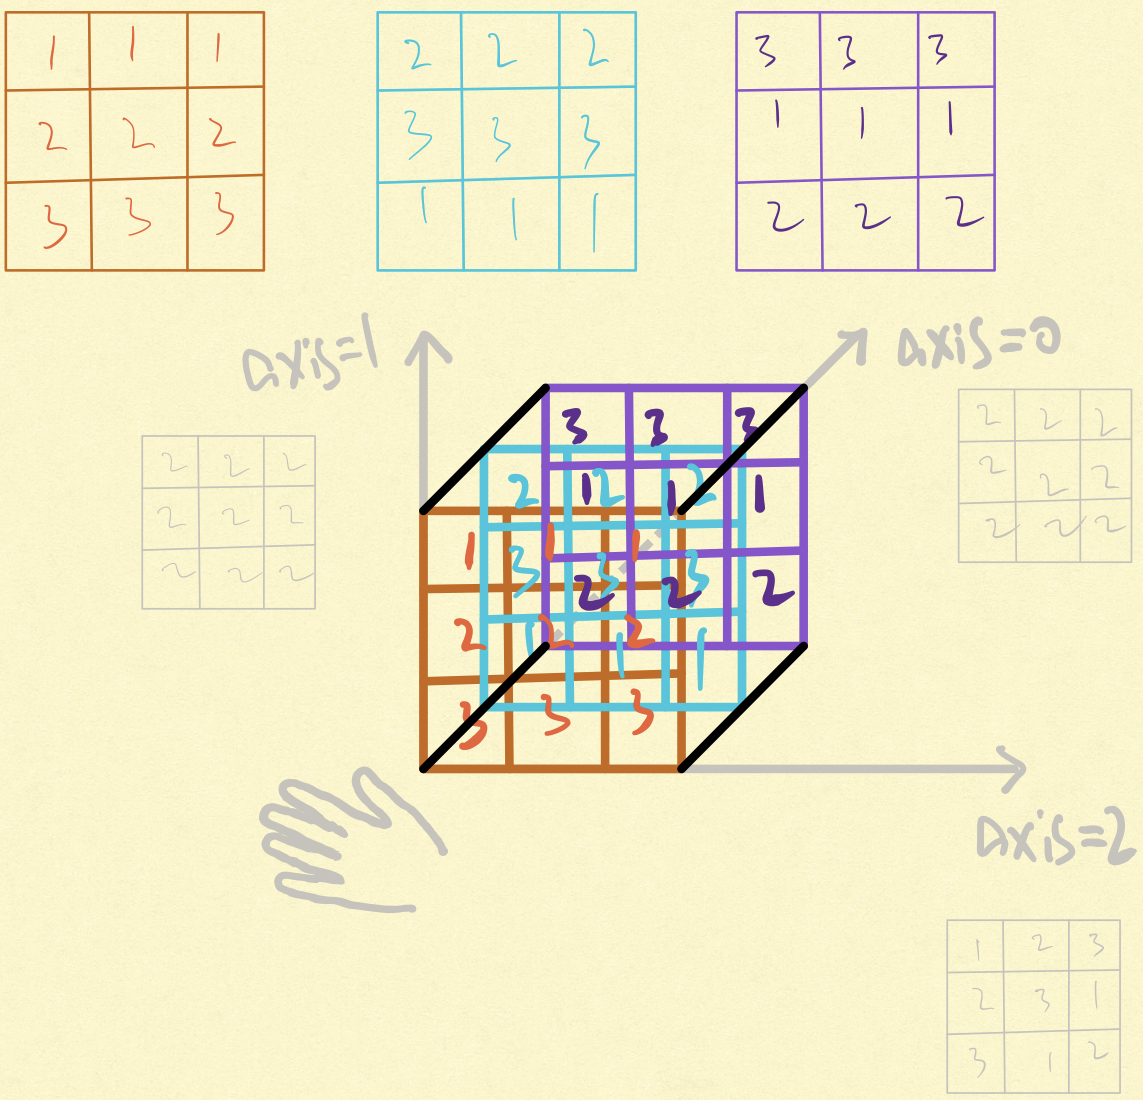 1 1 1
2 2 2
3 3 3
2 2 2
3 3 3
1 1 1
3 3 3
1 1 1
2 2 2
axis=1
axis=0
2 2 2
2 2 2
2 2 2
2 2 2
2 2 2
2 2 2
3 3 3
1 1 1
2 2 2
2 2 2
3 3 3
1 1 1
1 1 1
2 2 2
3 3 3
axis=2
1 2 3
2 3 1
3 1 2